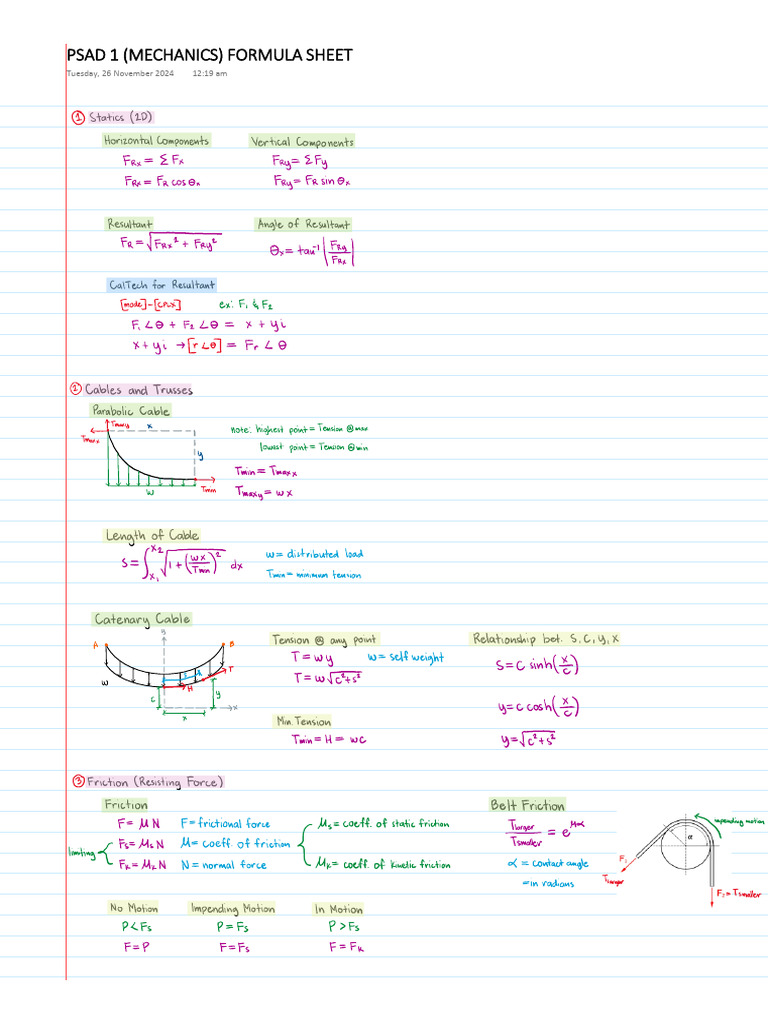 PSAD 1 (MECHANICS) FORMULA SHEET
Tuesday, 26 November 2024 12:19 am
① Statics (2D)
Horizontal Components Vertical Components
F_Rx = ΣFx F_Ry = ΣFy
F_Rx = F_R cos θx F_Ry = F_R sin θx
Resultant Angle of Resultant
F_R = √(F_Rx² + F_Ry²) θx = tan⁻¹ |F_Ry/F_Rx|
CalTech for Resultant
[mode]-[CPLX] ex: F₁ & F₂
F₁∠θ + F₂∠θ = x + yi
x + yi → [r∠θ] = Fr∠θ
② Cables and Trusses
Parabolic Cable
Tmaxy x
Tmaxx
y
w Tmin
note: highest point = Tension @ max
lowest point = Tension @ min
Tmin = Tmaxx
Tmaxy = wx
Length of Cable
S = ∫x₁^x₂ √(1 + (wx/Tmin)²) dx
w = distributed load
Tmin = minimum tension
Catenary Cable
y
A B
w S T
H
c y
x x
Tension @ any point
T = wy w = self weight
T = w√(c² + s²)
Min Tension
Tmin = H = wc
Relationship bet. S, C, y, x
S = C sinh(x/c)
y = c cosh(x/c)
y = √(c² + s²)
③ Friction (Resisting Force)
Friction
F = μN F = frictional force
limiting
Fs = μsN μ = coeff. of friction
Fk = μkN N = normal force
μs = coeff. of static friction
μk = coeff. of kinetic friction
Belt Friction
Tlarger/Tsmaller = e^μα
α = contact angle
= in radians
impending motion
α
F₁
Tlarger
F₂ = Tsmaller
No Motion Impending Motion In Motion
P < Fs P = Fs P > Fs
F = P F = Fs F = Fk